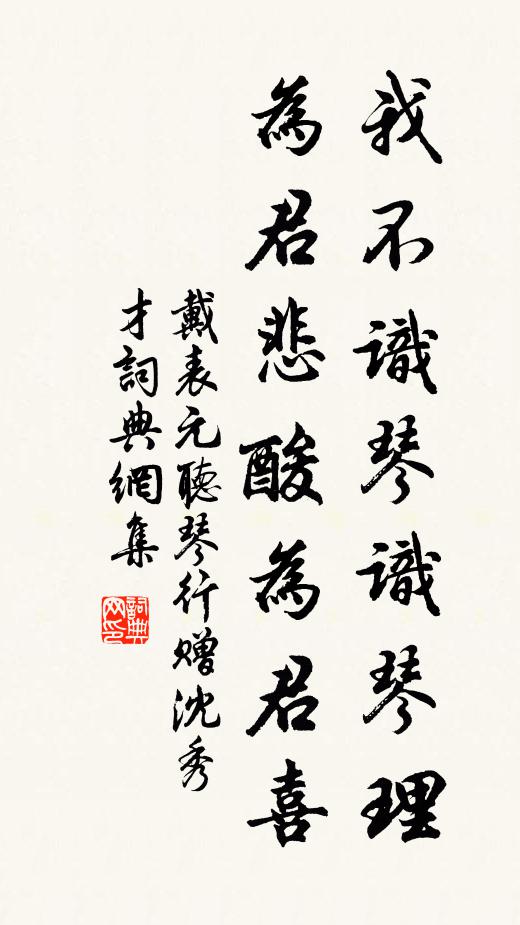 我不識琴識琴理
為君悲酸為君喜
戴表元聽琴行贈沈秀
才詞典網集
詞典网印